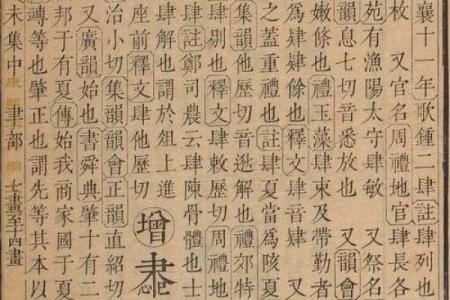 襄十一年歌鍾二肆註肆列也
枚 又官名周禮地官肆長各
苑有漁陽太守肆敏 又祭名
韻息七切音悉放也 又韻會
嫩條也禮玉藻肆束及帶勤者
為肆肆餘也 又
之蓋重禮也註肆夏當為陔夏
集韻他歷切音逖解也禮郊特
肆剔也釋文肆敕歷切周禮地
肆註鄭司農云肆陳骨體也士
肆解謂於俎上進
座前釋文肆他歷切
增
治小切集韻韻會正韻直紹切
又廣韻始也書舜典肇十有二
邦于有夏傳始我商家國于夏
等也肇正也謂先等其本以
未集中 聿部 士畫至十四畫